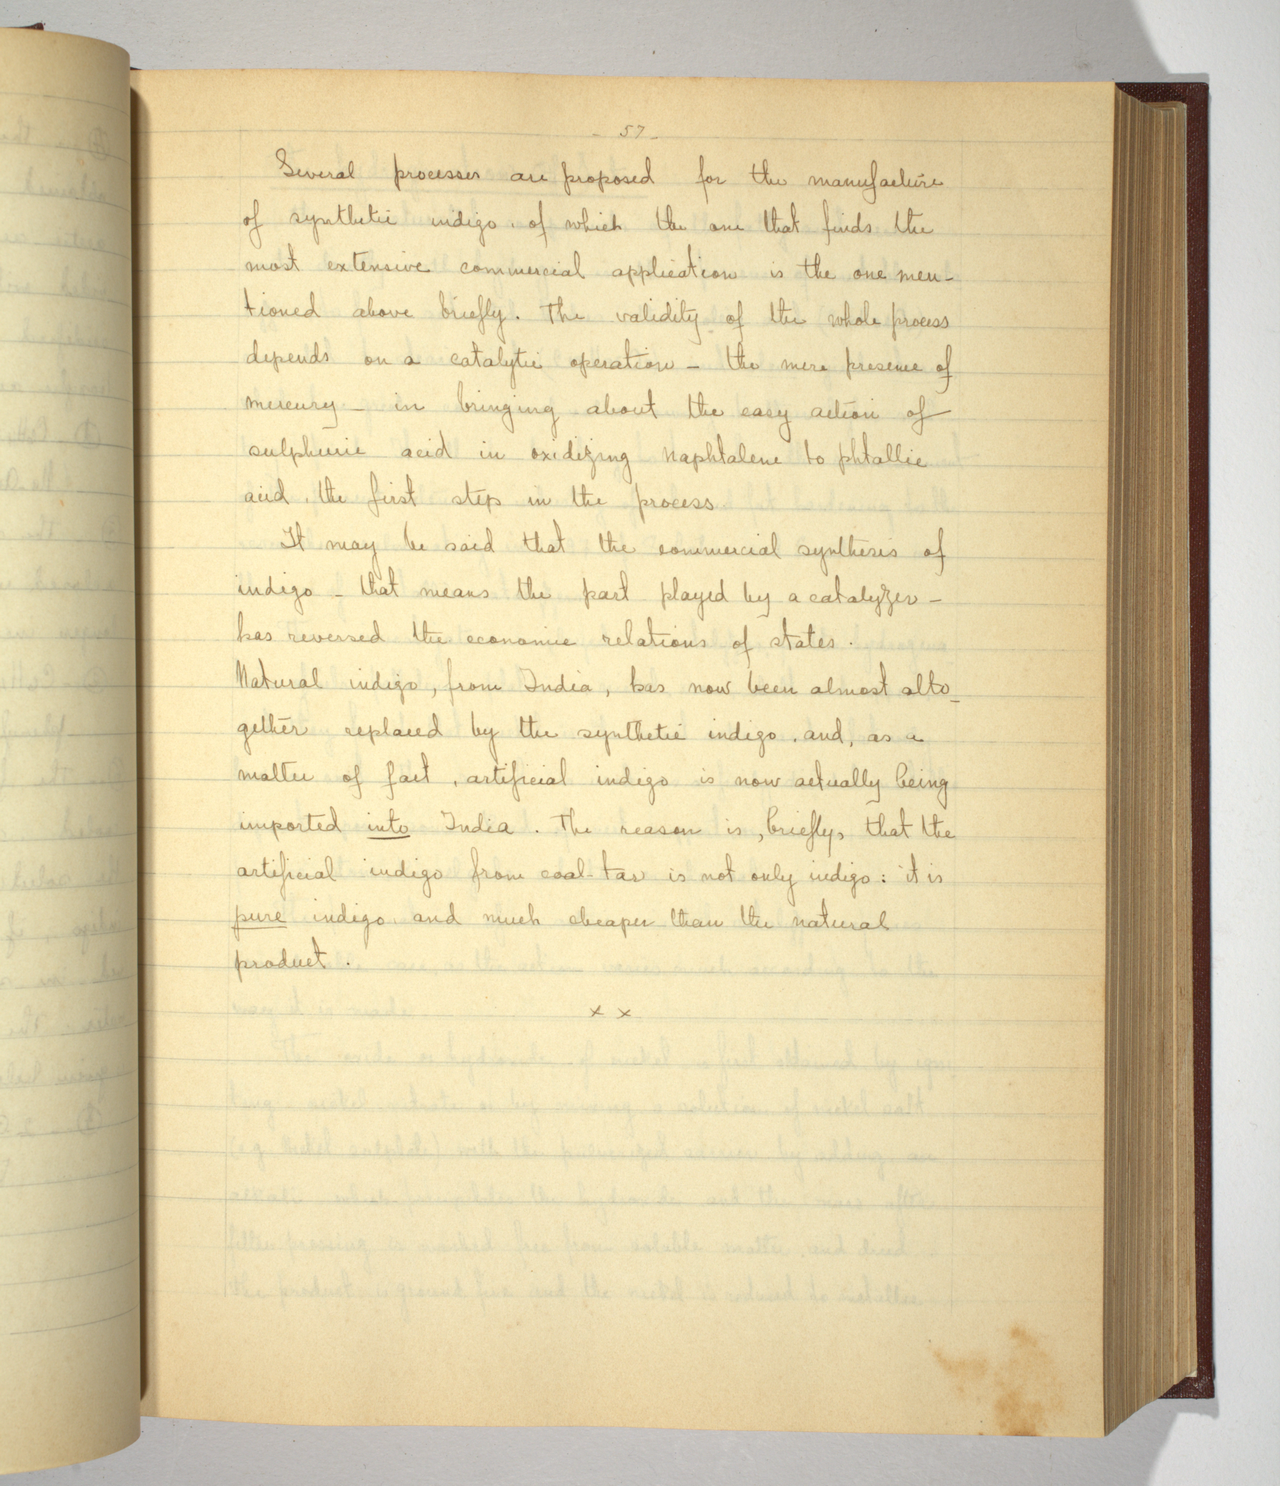 - 57 -
Several processes are proposed for the manufacture
of synthetic indigo, of which the one that finds the
most extensive commercial application is the one men-
tioned above briefly. The validity of the whole process
depends on a catalytic operation - the mere presence of
mercury - in bringing about the easy action of
sulphuric acid in oxidizing naphtalene to phtallic
acid, the first step in the process
It may be said that the commercial synthesis of
indigo - that means the part played by a catalyzer -
has reversed the economic relations of states.
Natural indigo, from India, has now been almost alto-
gether replaced by the synthetic indigo, and, as a
matter of fact, artificial indigo is now actually being
imported into India. The reason is, briefly, that the
artificial indigo from coal-tar is not only indigo: it is
pure indigo, and much cheaper than the natural
product.
x x